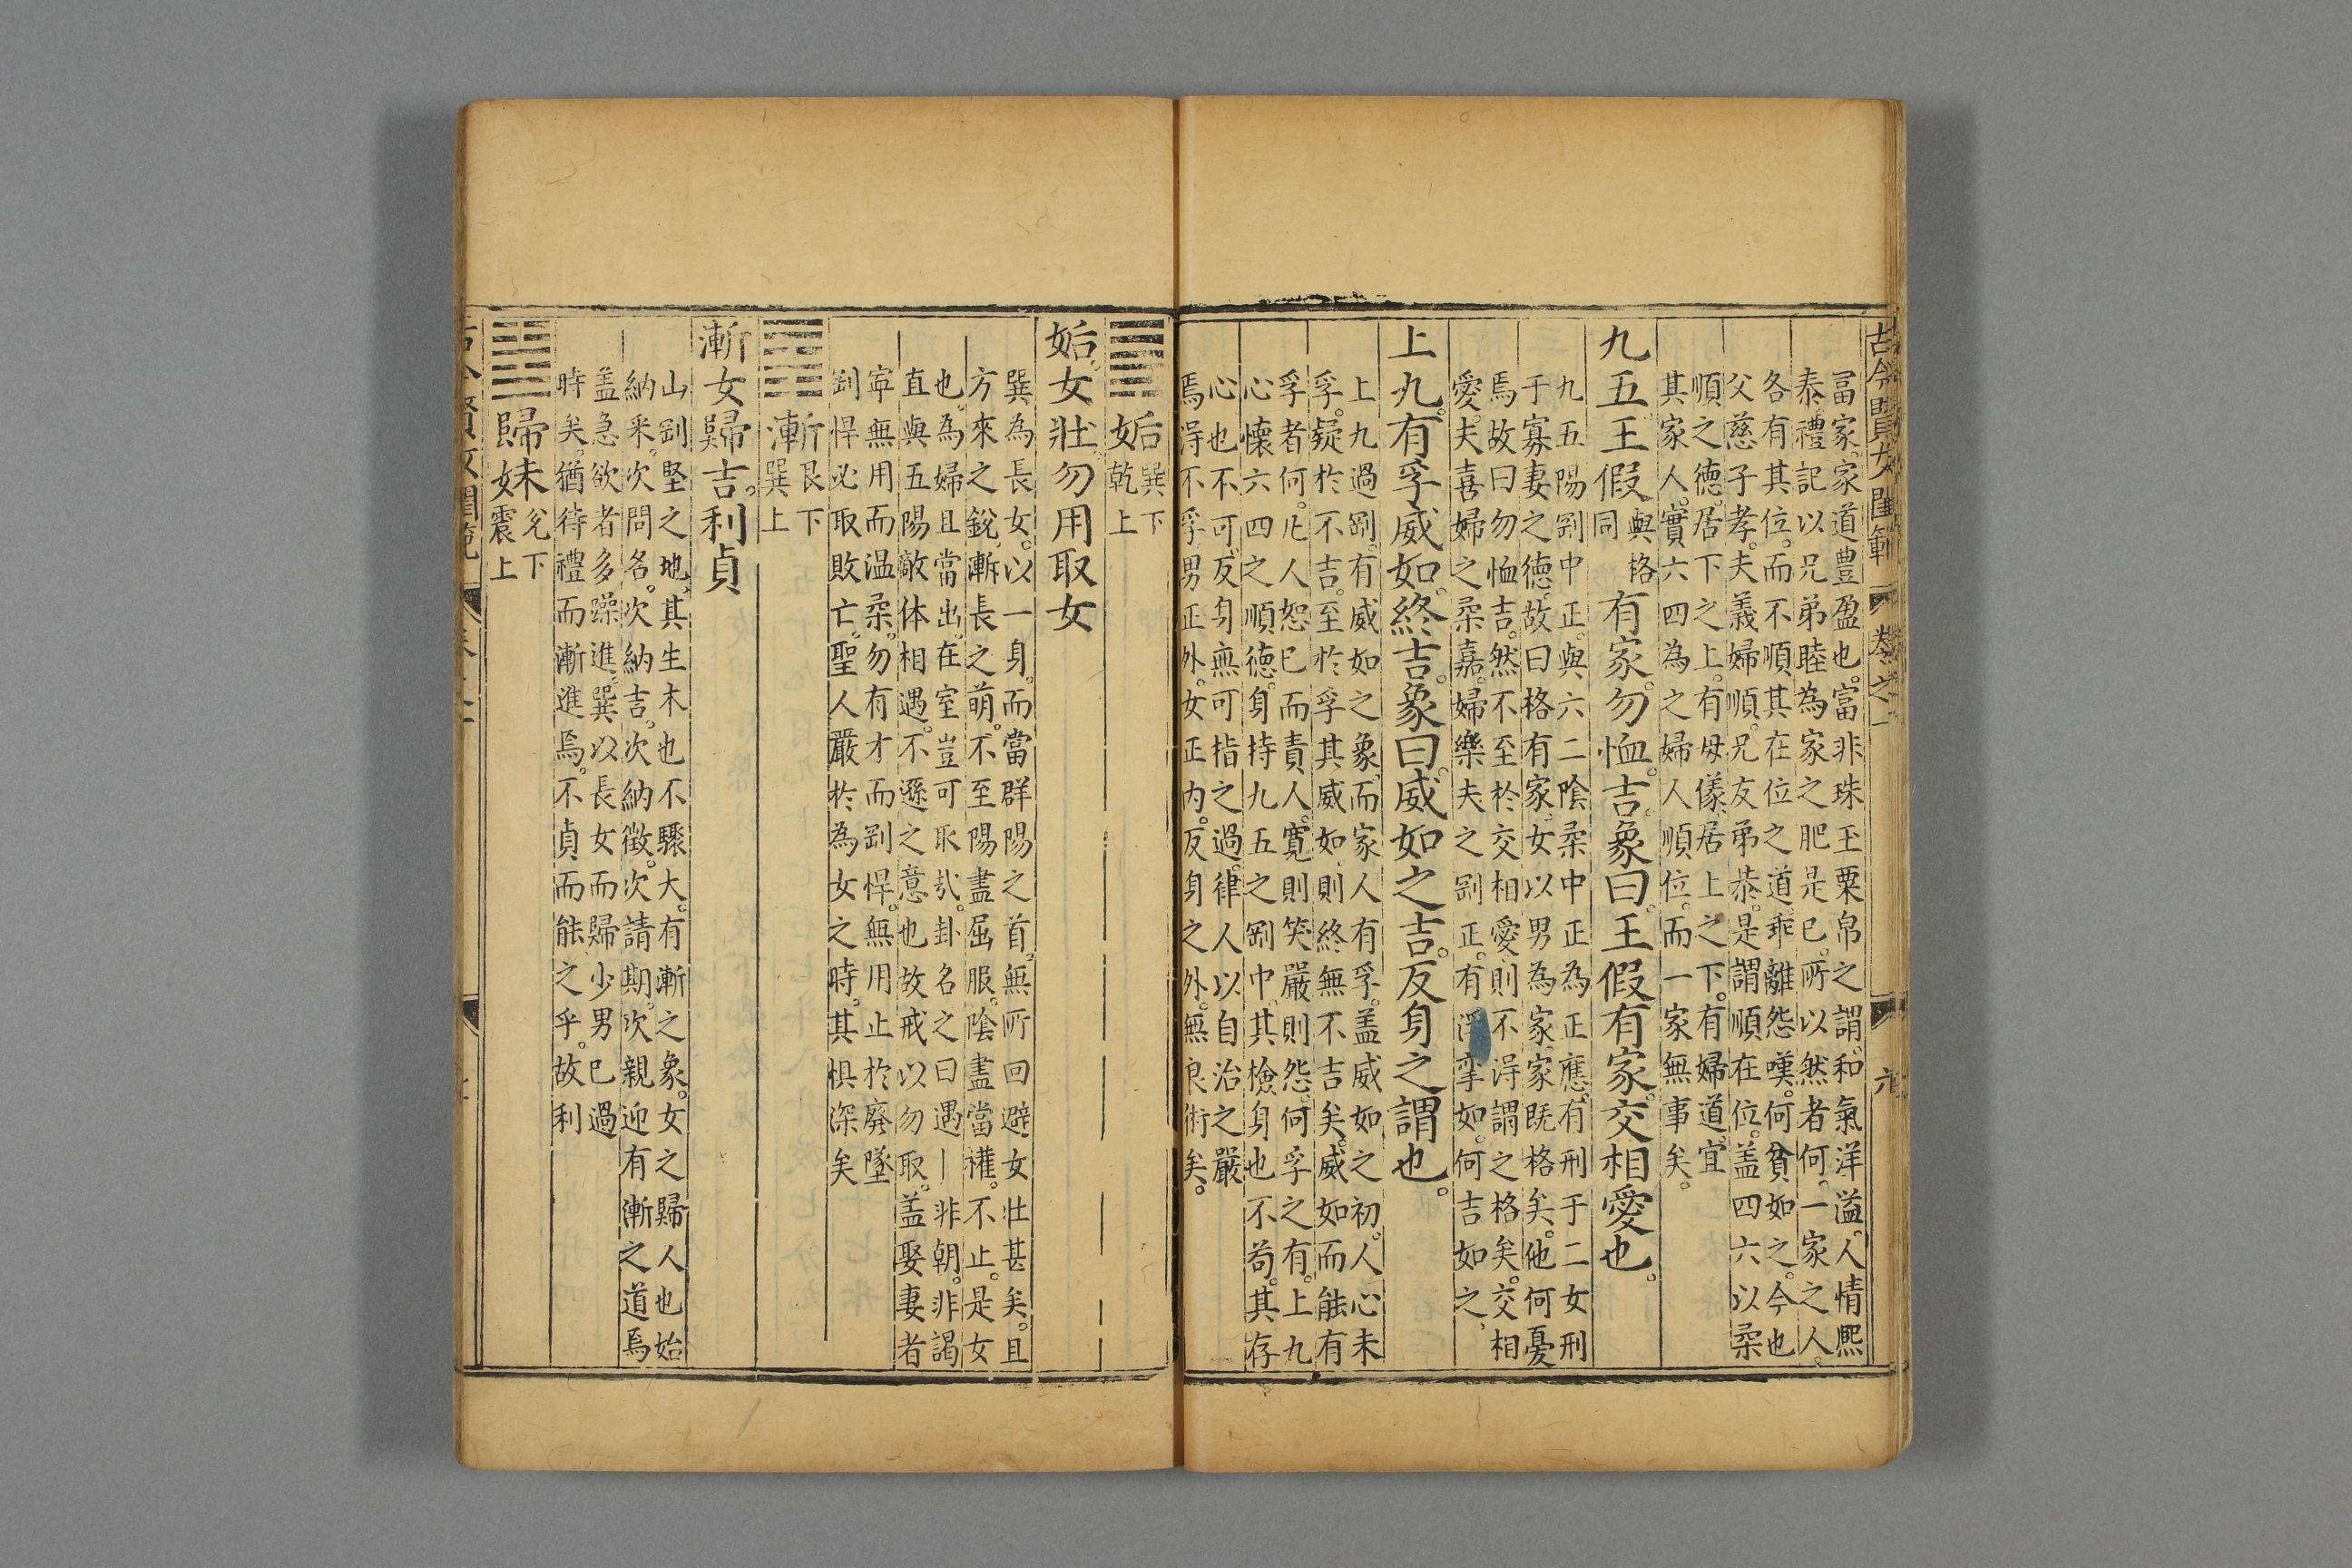 古今賢女閨範 卷之一 六
冨家家道豊盈也富非珠玉粟帛之謂和氣洋溢人情熙
泰禮記以兄弟睦為家之肥是已所以然者何一家之人
各有其位而不順其在位之道乖離怨嘆何貧如之今也
父慈子孝夫義婦順兄友弟恭是謂順在位盖四六以柔
順之德居下之上有母儀居上之下有婦道宜
其家人實六四為之婦人順位而一家無事矣
九五王假與格同有家勿恤吉象曰王假有家交相愛也
九五陽剛中正與六二陰柔中正為正應有刑于二女刑
于寡妻之德故曰格有家女以男為家家既格矣他何憂
焉故曰勿恤吉然不至於交相愛則不得謂之格矣交相
愛夫喜婦之柔嘉婦樂夫之剛正有孚攣如何吉如之
上九有孚威如終吉象曰威如之吉反身之謂也
上九過剛有威如之象而家人有孚盖威如之初人心未
孚疑於不吉至於孚其威如則終無不吉矣威如而能有
孚者何凡人恕已而責人寬則笑嚴則怨何孚之有上九
心懷六四之順德身持九五之剛中其檢身也不苟其存
心也不可反身無可指之過律人以自治之嚴
焉得不孚男正外女正内反身之外無良術矣
姤巽下乾上
姤女壯勿用取女
巽為長女以一身而當群陽之首無所回避女壯甚矣且
方來之銳漸長之萌不至陽盡屈服陰盡當權不止是女
也為婦且當出在室豈可取㢤卦名之曰遇非朝非謁
直與五陽敵体相遇不遜之意也故戒以勿取盖娶妻者
寧無用而温柔勿有才而剛悍無用止於廢墜
剛悍必取敗亡聖人嚴於為女之時其惧深矣
漸艮下巽上
漸女歸吉利貞
山剛堅之地其生木也不驟大有漸之象女之歸人也始
納采次問名次納吉次納徵次請期次親迎有漸之道焉
盖急欲者多躁進巽以長女而歸少男已過
時矣猶待禮而漸進焉不貞而能之乎故利
歸妹兌下震上